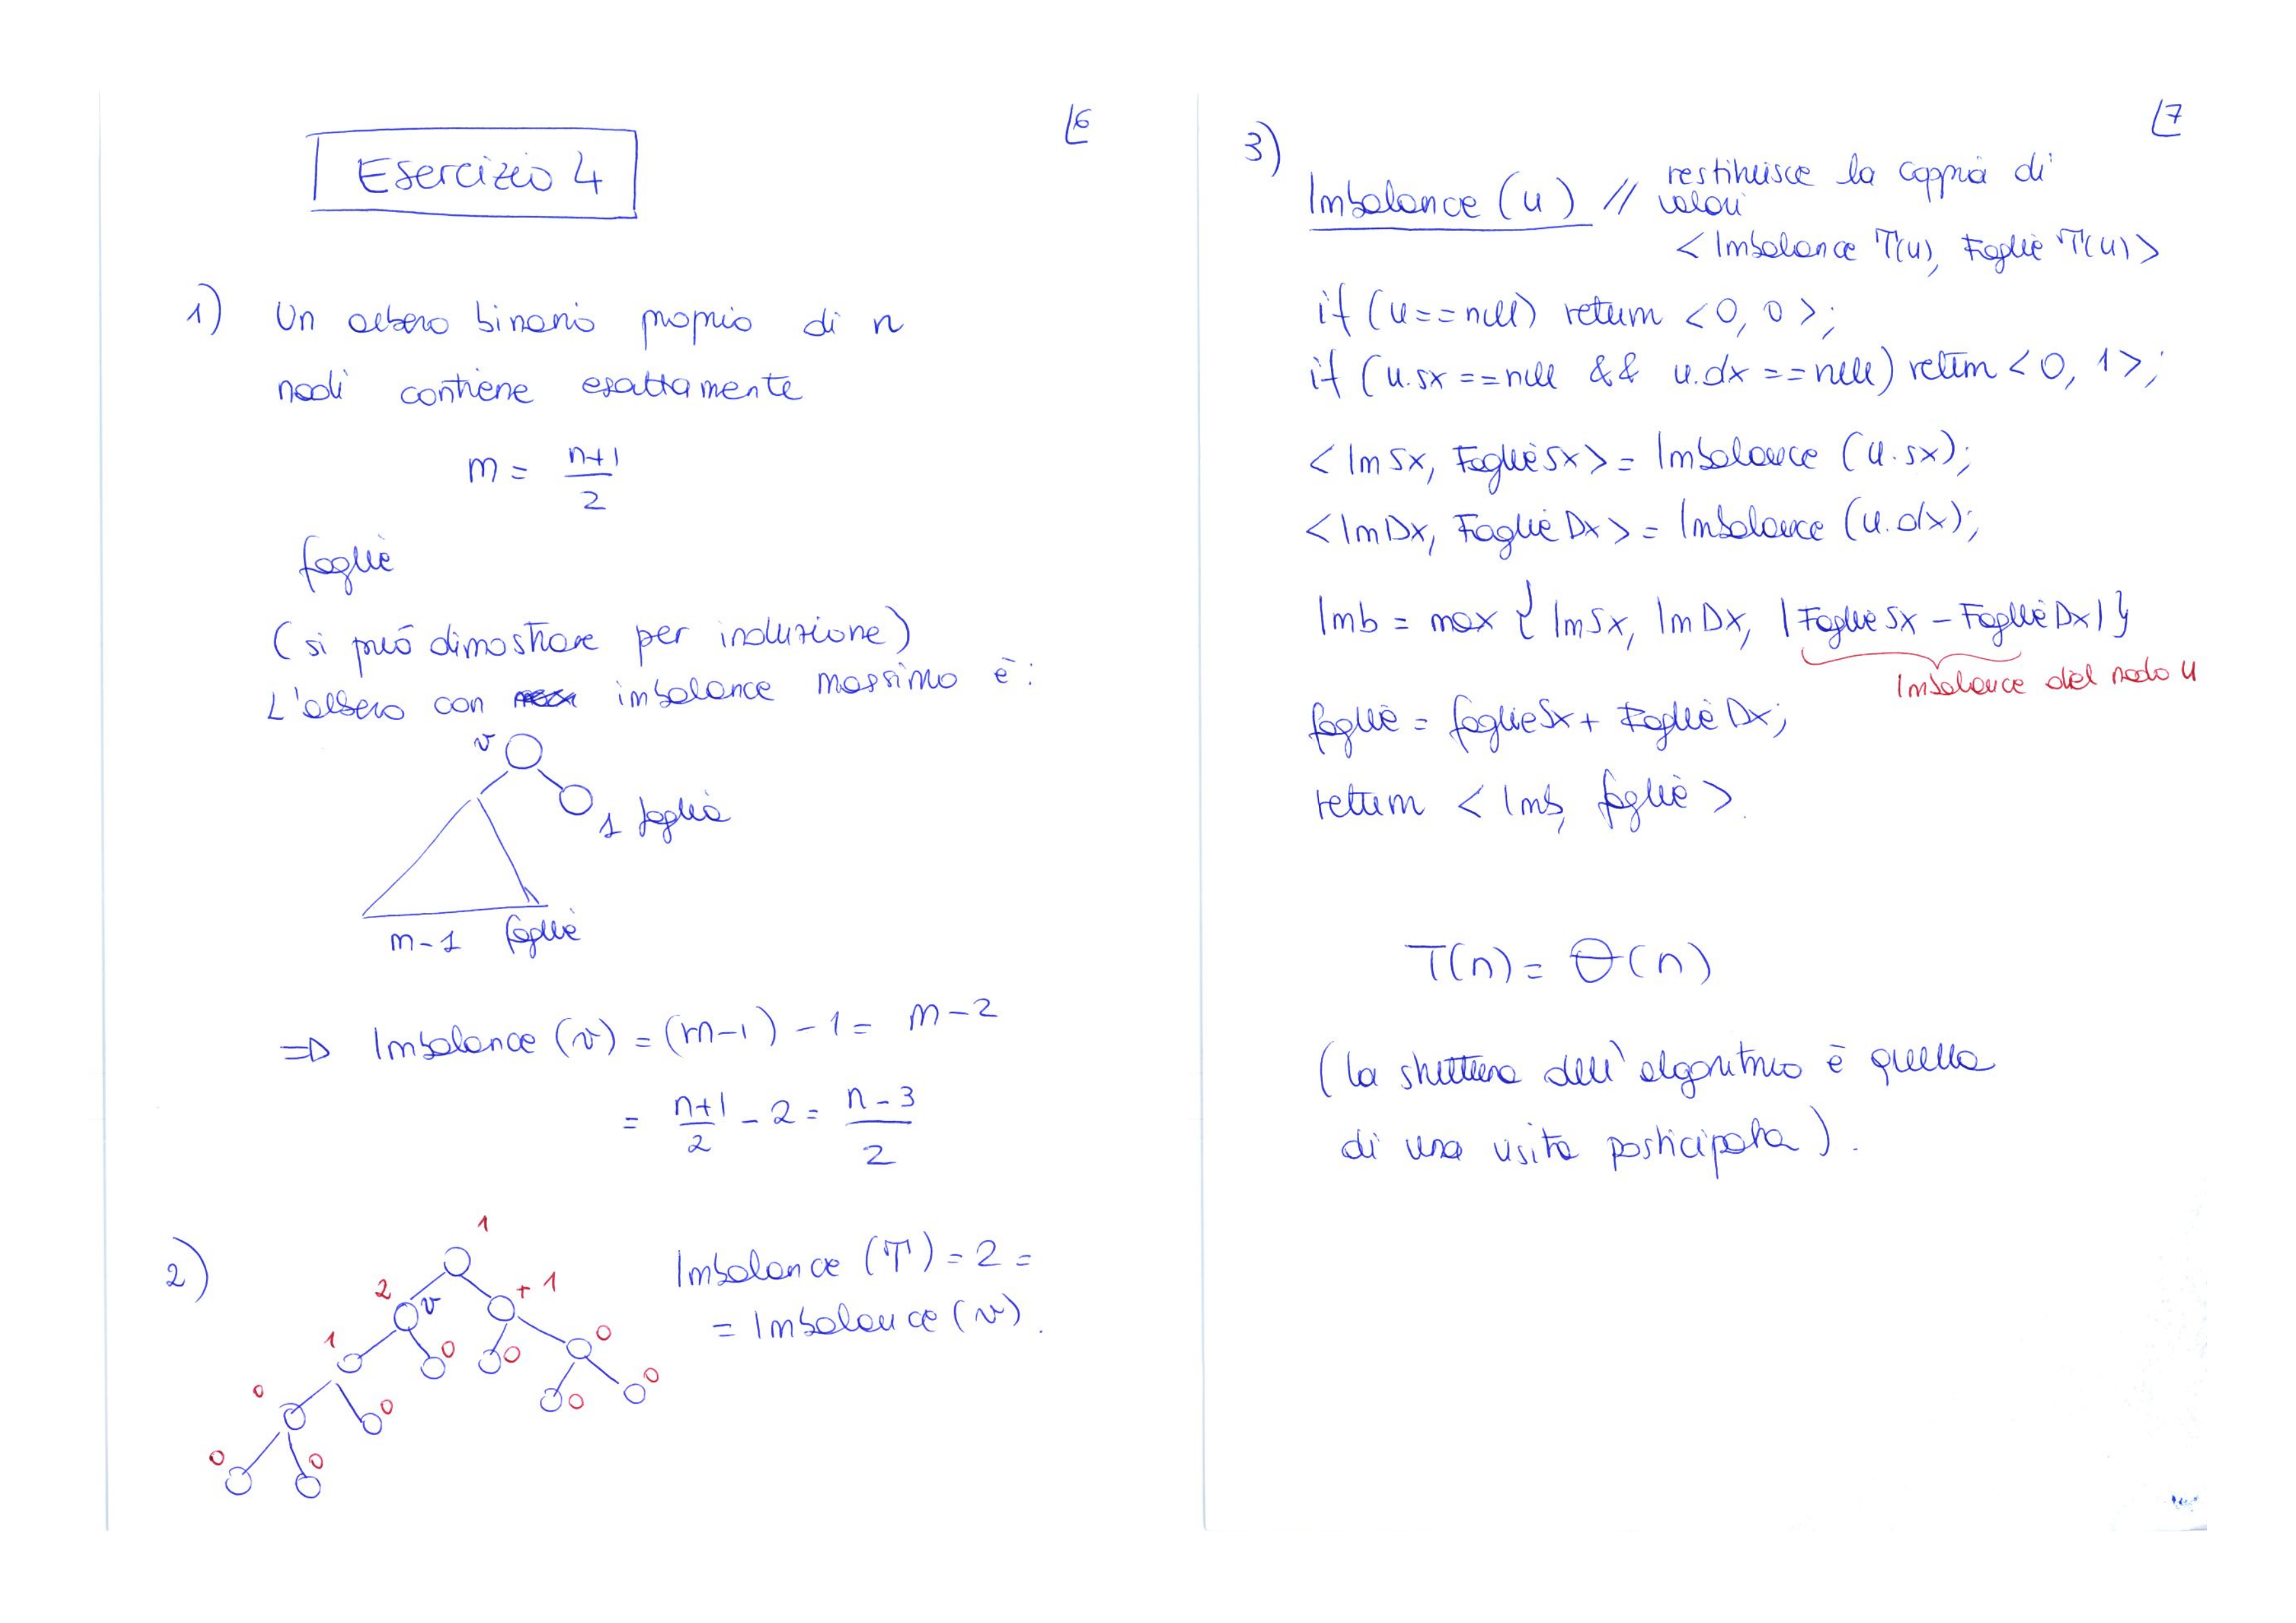 6
Esercizio 4
1) Un albero binario proprio di n
nodi contiene esattamente
m = n+1
2
foglie
(si può dimostrare per induzione)
L'albero con imbalance massimo è:
v
1 foglia
m-1 foglie
=> Imbalance (v) = (m-1) - 1 = m-2
= n+1/2 - 2 = n-3/2
2)
1
2 v + 1
1 0 0 0
0 0 0 0
0 0
Imbalance (T) = 2 =
= Imbalance (v).
7
3)
Imbalance (u) // restituisce la coppia di
valori
< Imbalance T(u), Foglie T(u) >
if (u == null) return < 0, 0 >;
if (u.sx == null && u.dx == null) return < 0, 1 >;
< Im Sx, Foglie Sx > = Imbalance (u.sx);
< Im Dx, Foglie Dx > = Imbalance (u.dx);
Imb = max { Im Sx, Im Dx, | Foglie Sx - Foglie Dx | }
Imbalance del nodo u
foglie = foglie Sx + Foglie Dx;
return < Imb, foglie >.
T(n) = Θ(n)
(la struttura dell'algoritmo è quella
di una visita posticipata).